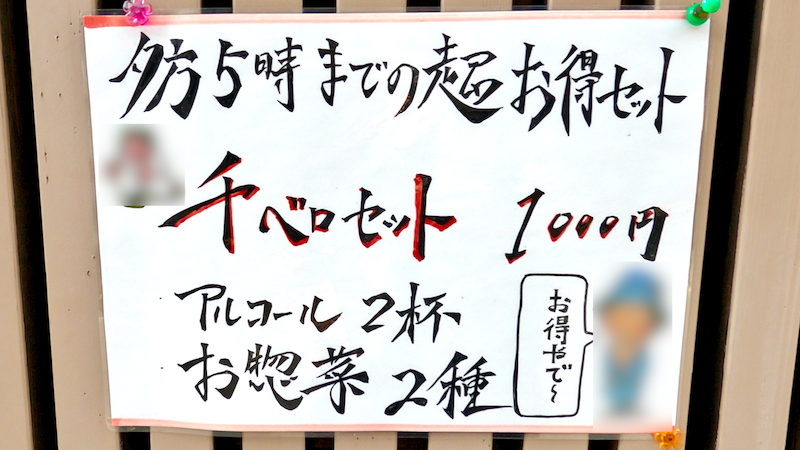 夕方5時までの超お得セット
千ベロセット 1000円
アルコール 2杯
お惣菜 2種
お得やで~